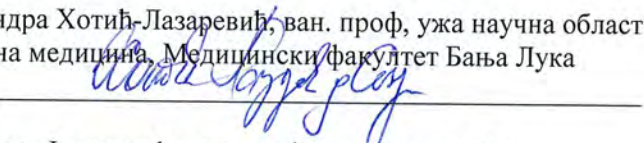 ндра Хотић-Лазаревић, ван. проф, ужа научна област
на медицина, Медицински факултет Бања Лука